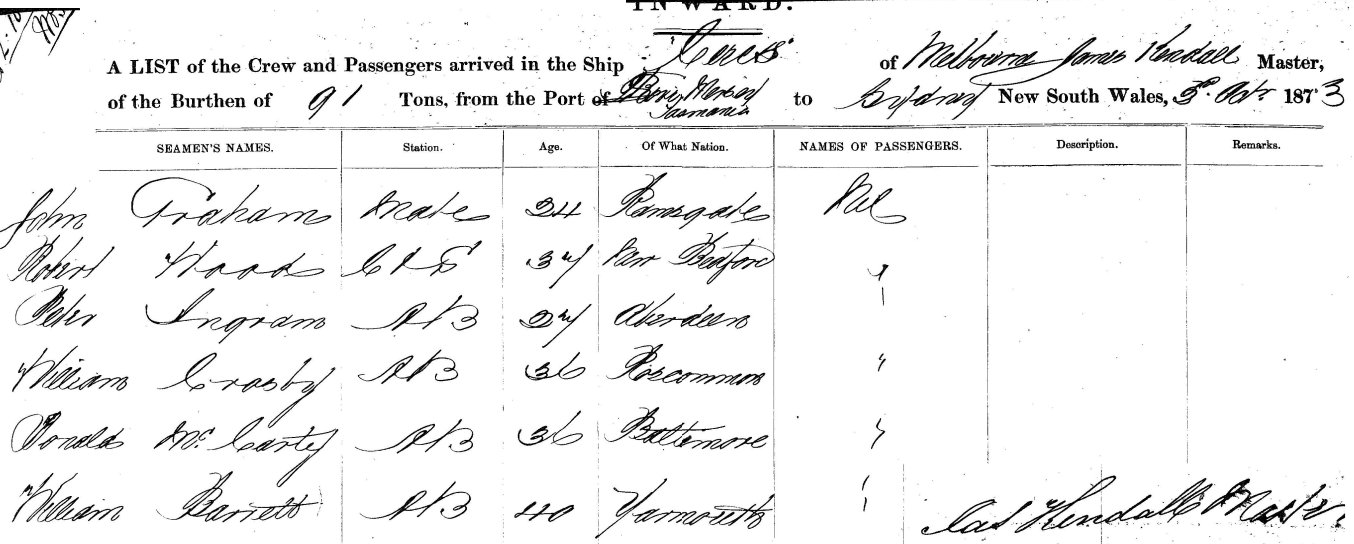 INWARD.
A LIST of the Crew and Passengers arrived in the Ship "Ceres" of Melbourne James Kendall Master,
of the Burthen of 91 Tons, from the Port of River Mersey Tasmania to Sydney New South Wales, 3rd Octr 1873
SEAMEN'S NAMES. Station. Age. Of What Nation. NAMES OF PASSENGERS. Description. Remarks.
John Graham Mate 24 Ramsgate Nil
Robert Wood C & S 37 New Bedford "
Peter Ingram AB 27 Aberdeen "
William Crosby AB 36 Roscommon "
Donald McCarty AB 36 Baltimore "
William Barrett AB 40 Yarmouth "
Jas Kendall Master